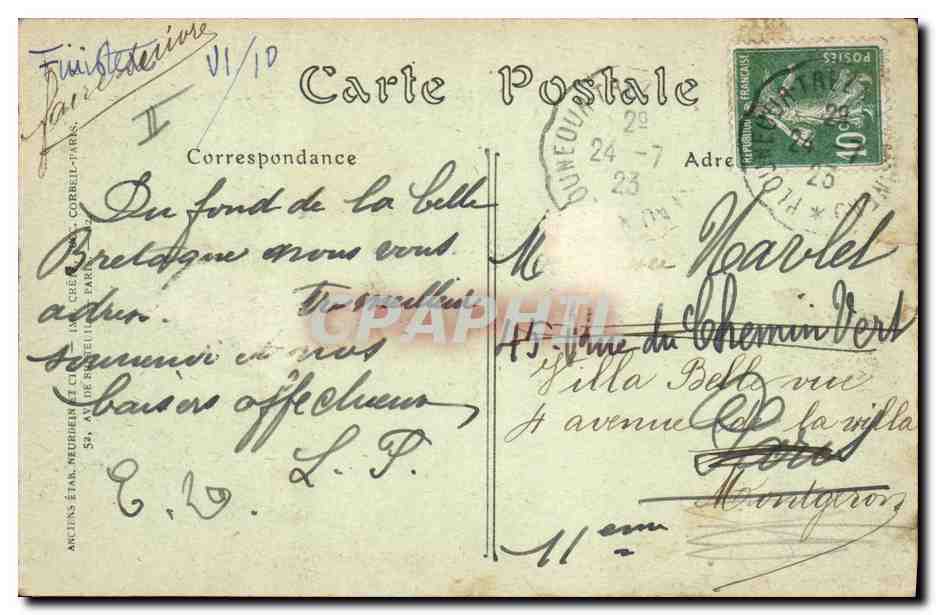 Finistère
faire suivre
VI/10
II
Carte Postale
Correspondance
Adre
RÉPUBLIQUE FRANÇAISE
POSTES
10c
29
24 -7
23
29
24
23
Du fond de la belle
Bretagne nous vous
adres. Tr. meilleur
souvenir et nos
baisers affectueux
L. P.
E. D.
M Marlet
45 rue du Chemin Vert
Villa Belle vue
4 avenue de la villa
Paris
Montgeron
11eme
ANCIENS ÉTAB. NEURDEIN ET CIE — IMP. CRÉTÉ CORBEIL-PARIS.
52, AV. DE BRETEUIL PARIS
CPAPHIL